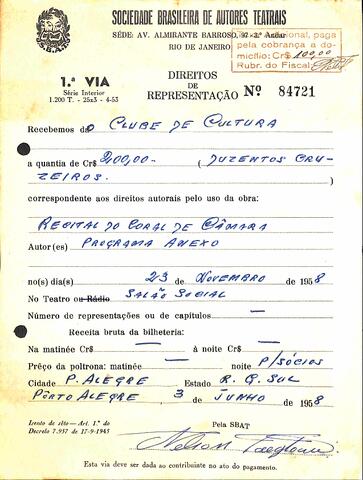 SOCIEDADE BRASILEIRA DE AUTORES TEATRAIS
SÉDE: AV. ALMIRANTE BARROSO, 97-3.º Andar
RIO DE JANEIRO
pela cobrança a do-
micílio: Cr$ 100,00
Rubr. do Fiscal:
1.ª VIA
Série Interior
1.200 T. - 25x3 - 4-53
DIREITOS
DE
REPRESENTAÇÃO
Nº 84721
Recebemos do CLUBE DE CULTURA
a quantia de Cr$ 200,00 - (DUZENTOS CRU-
ZEIROS.)
correspondente aos direitos autorais pelo uso da obra:
RECITAL DO CORAL DE CÂMARA
Autor(es) PROGRAMA ANEXO
no(s) dia(s) 23 de NOVEMBRO de 1958
No Teatro ou Rádio SALÃO SOCIAL
Número de representações ou de capítulos —
Receita bruta da bilheteria: —
Na matinée Cr$ — à noite Cr$ —
Preço da poltrona: matinée — noite P/SÓCIOS
Cidade P. ALEGRE Estado R. G. SUL
PÔRTO ALEGRE 3 de JUNHO de 1958
Isento de sêlo - Art. 1.º do
Decreto 7.957 de 17-9-1945
Pela SBAT
Nelson
Esta via deve ser dada ao contribuinte no ato do pagamento.